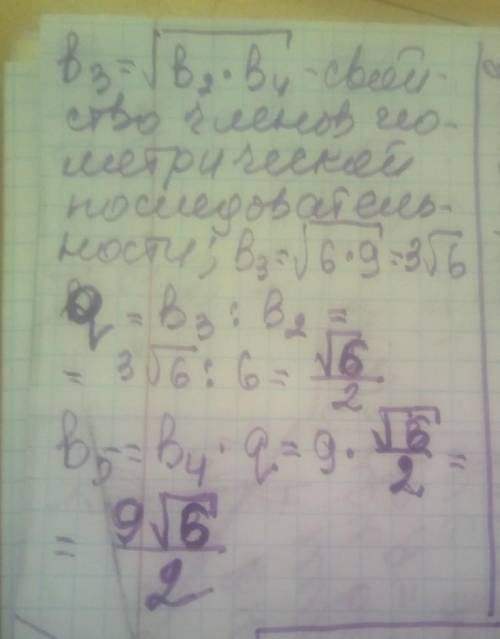 b₃ = √(b₂ · b₄) - свой-
ство членов гео-
метрической
последователь-
ности; b₃ = √(6·9) = 3√6
q = b₃ : b₂ =
= 3√6 : 6 = √6/2
b₅ = b₄ · q = 9 · √6/2 =
= 9√6/2